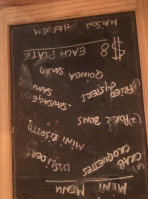 MINI MENU
CRAB
CROQUETTES
MINI RISOTTO
(2) PORK BUNS
SAUSAGE
FRIED OYSTERS
QUINOA SALAD
$8 EACH PLATE
MAISON HARLEM